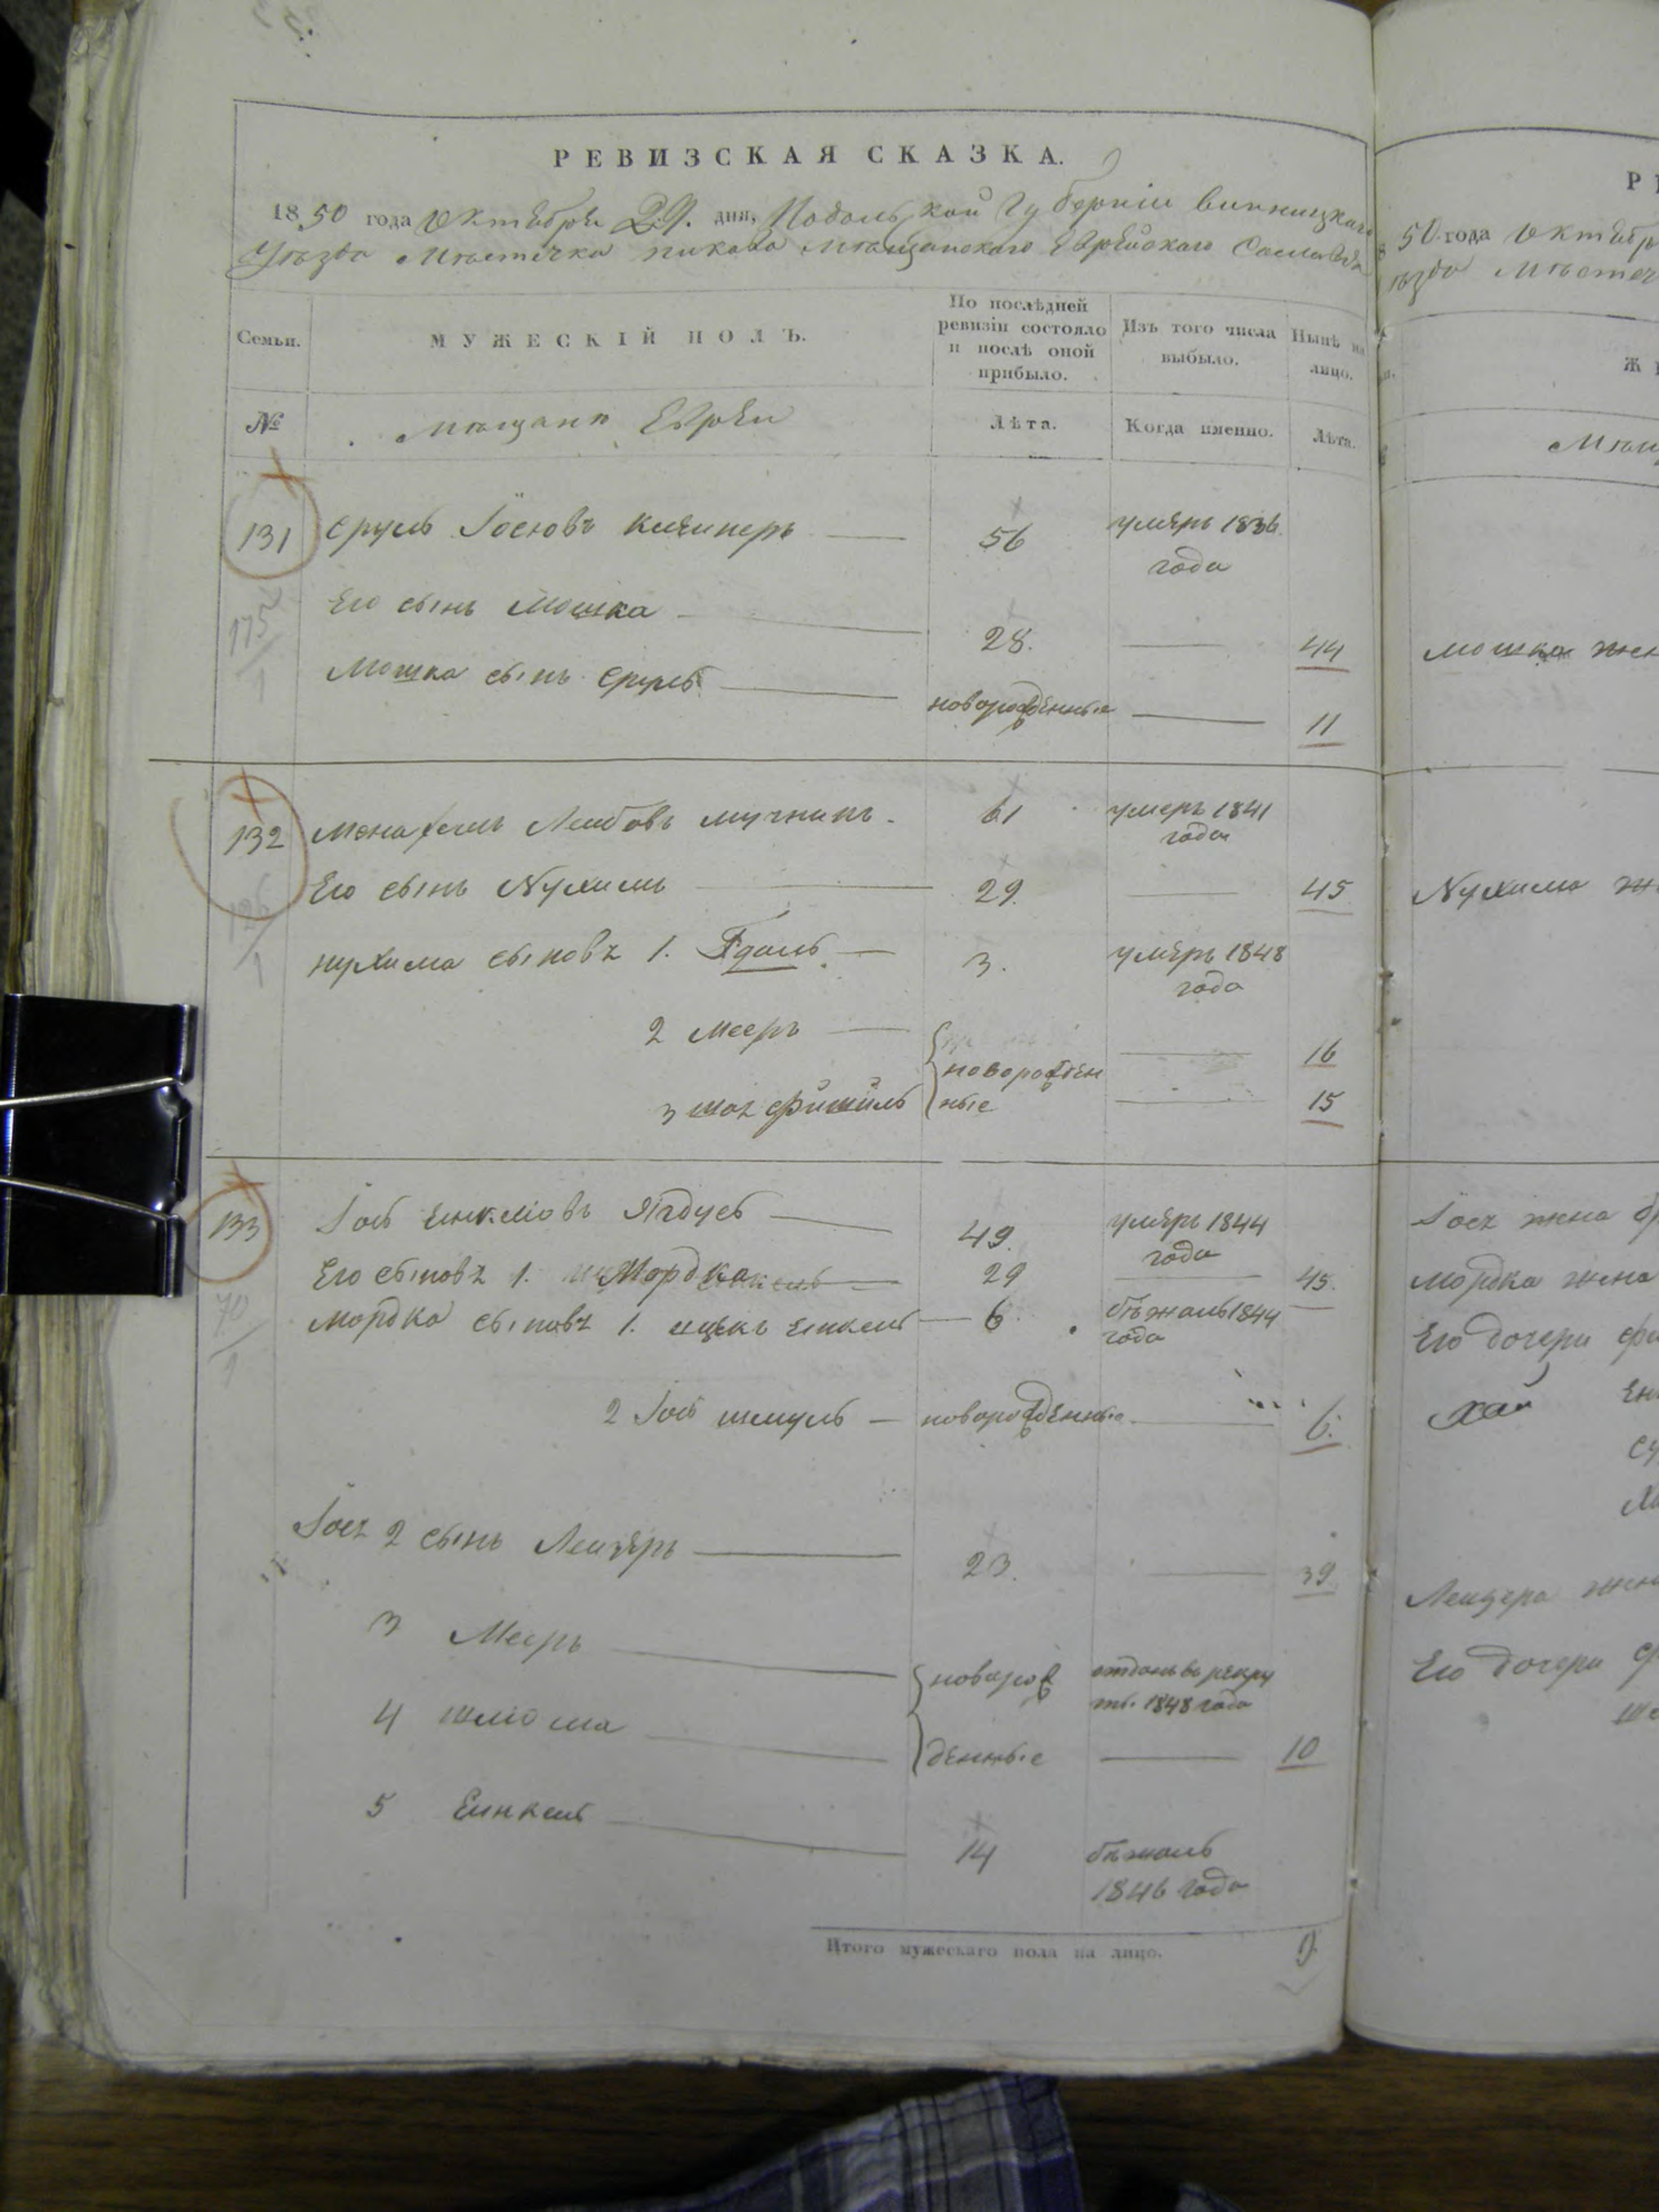 РЕВИЗСКАЯ СКАЗКА.
1850 года Октября 29. дня, Подольской Губерніи винницкаго
Уѣзда Мѣстечка пикова мѣщанскаго Еврейскаго Сословія
Семьи.
МУЖЕСКІЙ ПОЛЪ.
По послѣдней ревизіи состояло и послѣ оной прибыло.
Изъ того числа выбыло.
Нынѣ на лицо.
№
мѣщане Евреи
Лѣта.
Когда именно.
Лѣта.
131 Сруль Іосіовъ 56 умеръ 1836 года
175/1
Его сынъ Мошка 28. 44
Мошка сынъ Сруль новорожденные 11
132 Лейбовъ мучникъ 61 умеръ 1841 года
Его сынъ Нухимъ 29. 45
нухима сыновъ 1. 3. умеръ 1848 года
2 Мееръ 16
новорожденные
3 15
133 Іось 49. умеръ 1844 года
70/1
Его сыновъ 1. Мордка 29 45.
Мордка сыновъ 1. ицыкъ Енкель 6. бѣжалъ 1844 года
2 Іось шмуль новорожденные 6.
Іося 2 сынъ Лейзеръ 23. 39
3 Мееръ новорож отданъ въ рекруты. 1848 года
4 шліома денные 10
5 Еинкель 14 бѣжалъ 1846 года
Итого мужескаго пола на лицо. 9.
РЕ
50 года Октября
Ж
Мошка жен
Нухима ж
Іося жена
Мордка жена
Его дочери
хая
Лейзера жена
Его дочери